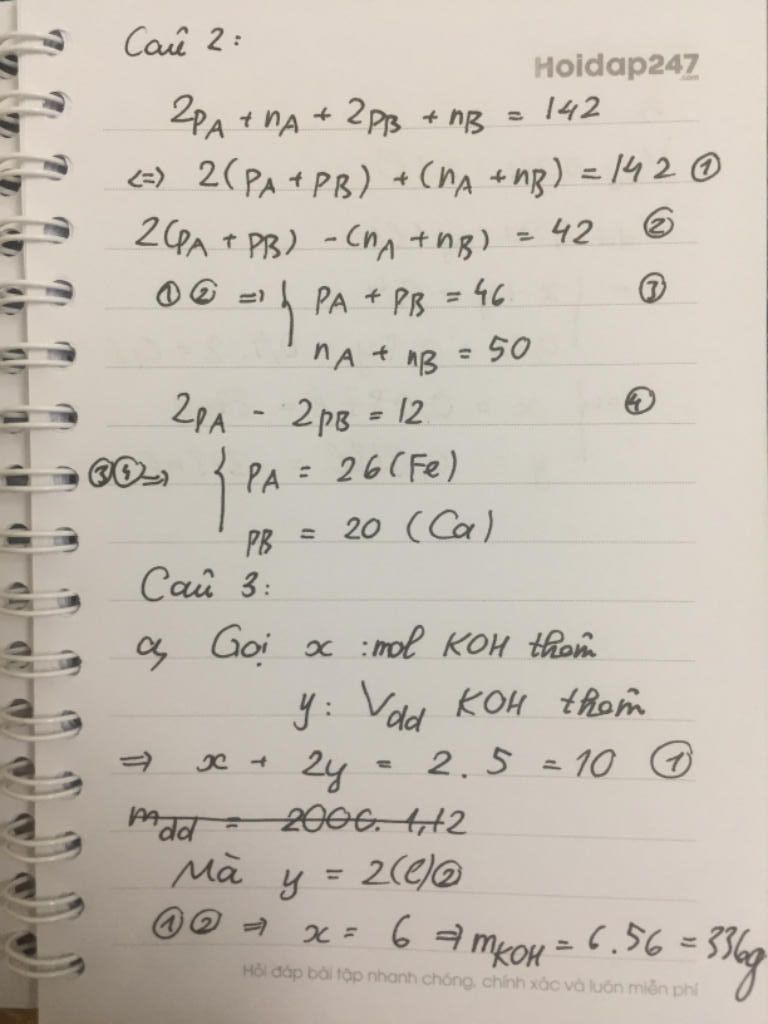 Câu 2:
Hoidap247
.com
2pA + nA + 2pB + nB = 142
<=> 2(pA + pB) + (nA + nB) = 142 ①
2(pA + pB) - (nA + nB) = 42 ②
① ② => { pA + pB = 46 ③
nA + nB = 50
2pA - 2pB = 12 ④
③④=> { pA = 26 (Fe)
pB = 20 (Ca)
Câu 3:
a, Gọi x : mol KOH thêm
y : Vdd KOH thêm
=> x + 2y = 2.5 = 10 ①
mdd = 2000. 1,12
Mà y = 2(l) ②
① ② => x = 6 => mKOH = 6.56 = 336g
Hỏi đáp bài tập nhanh chóng, chính xác và luôn miễn phí